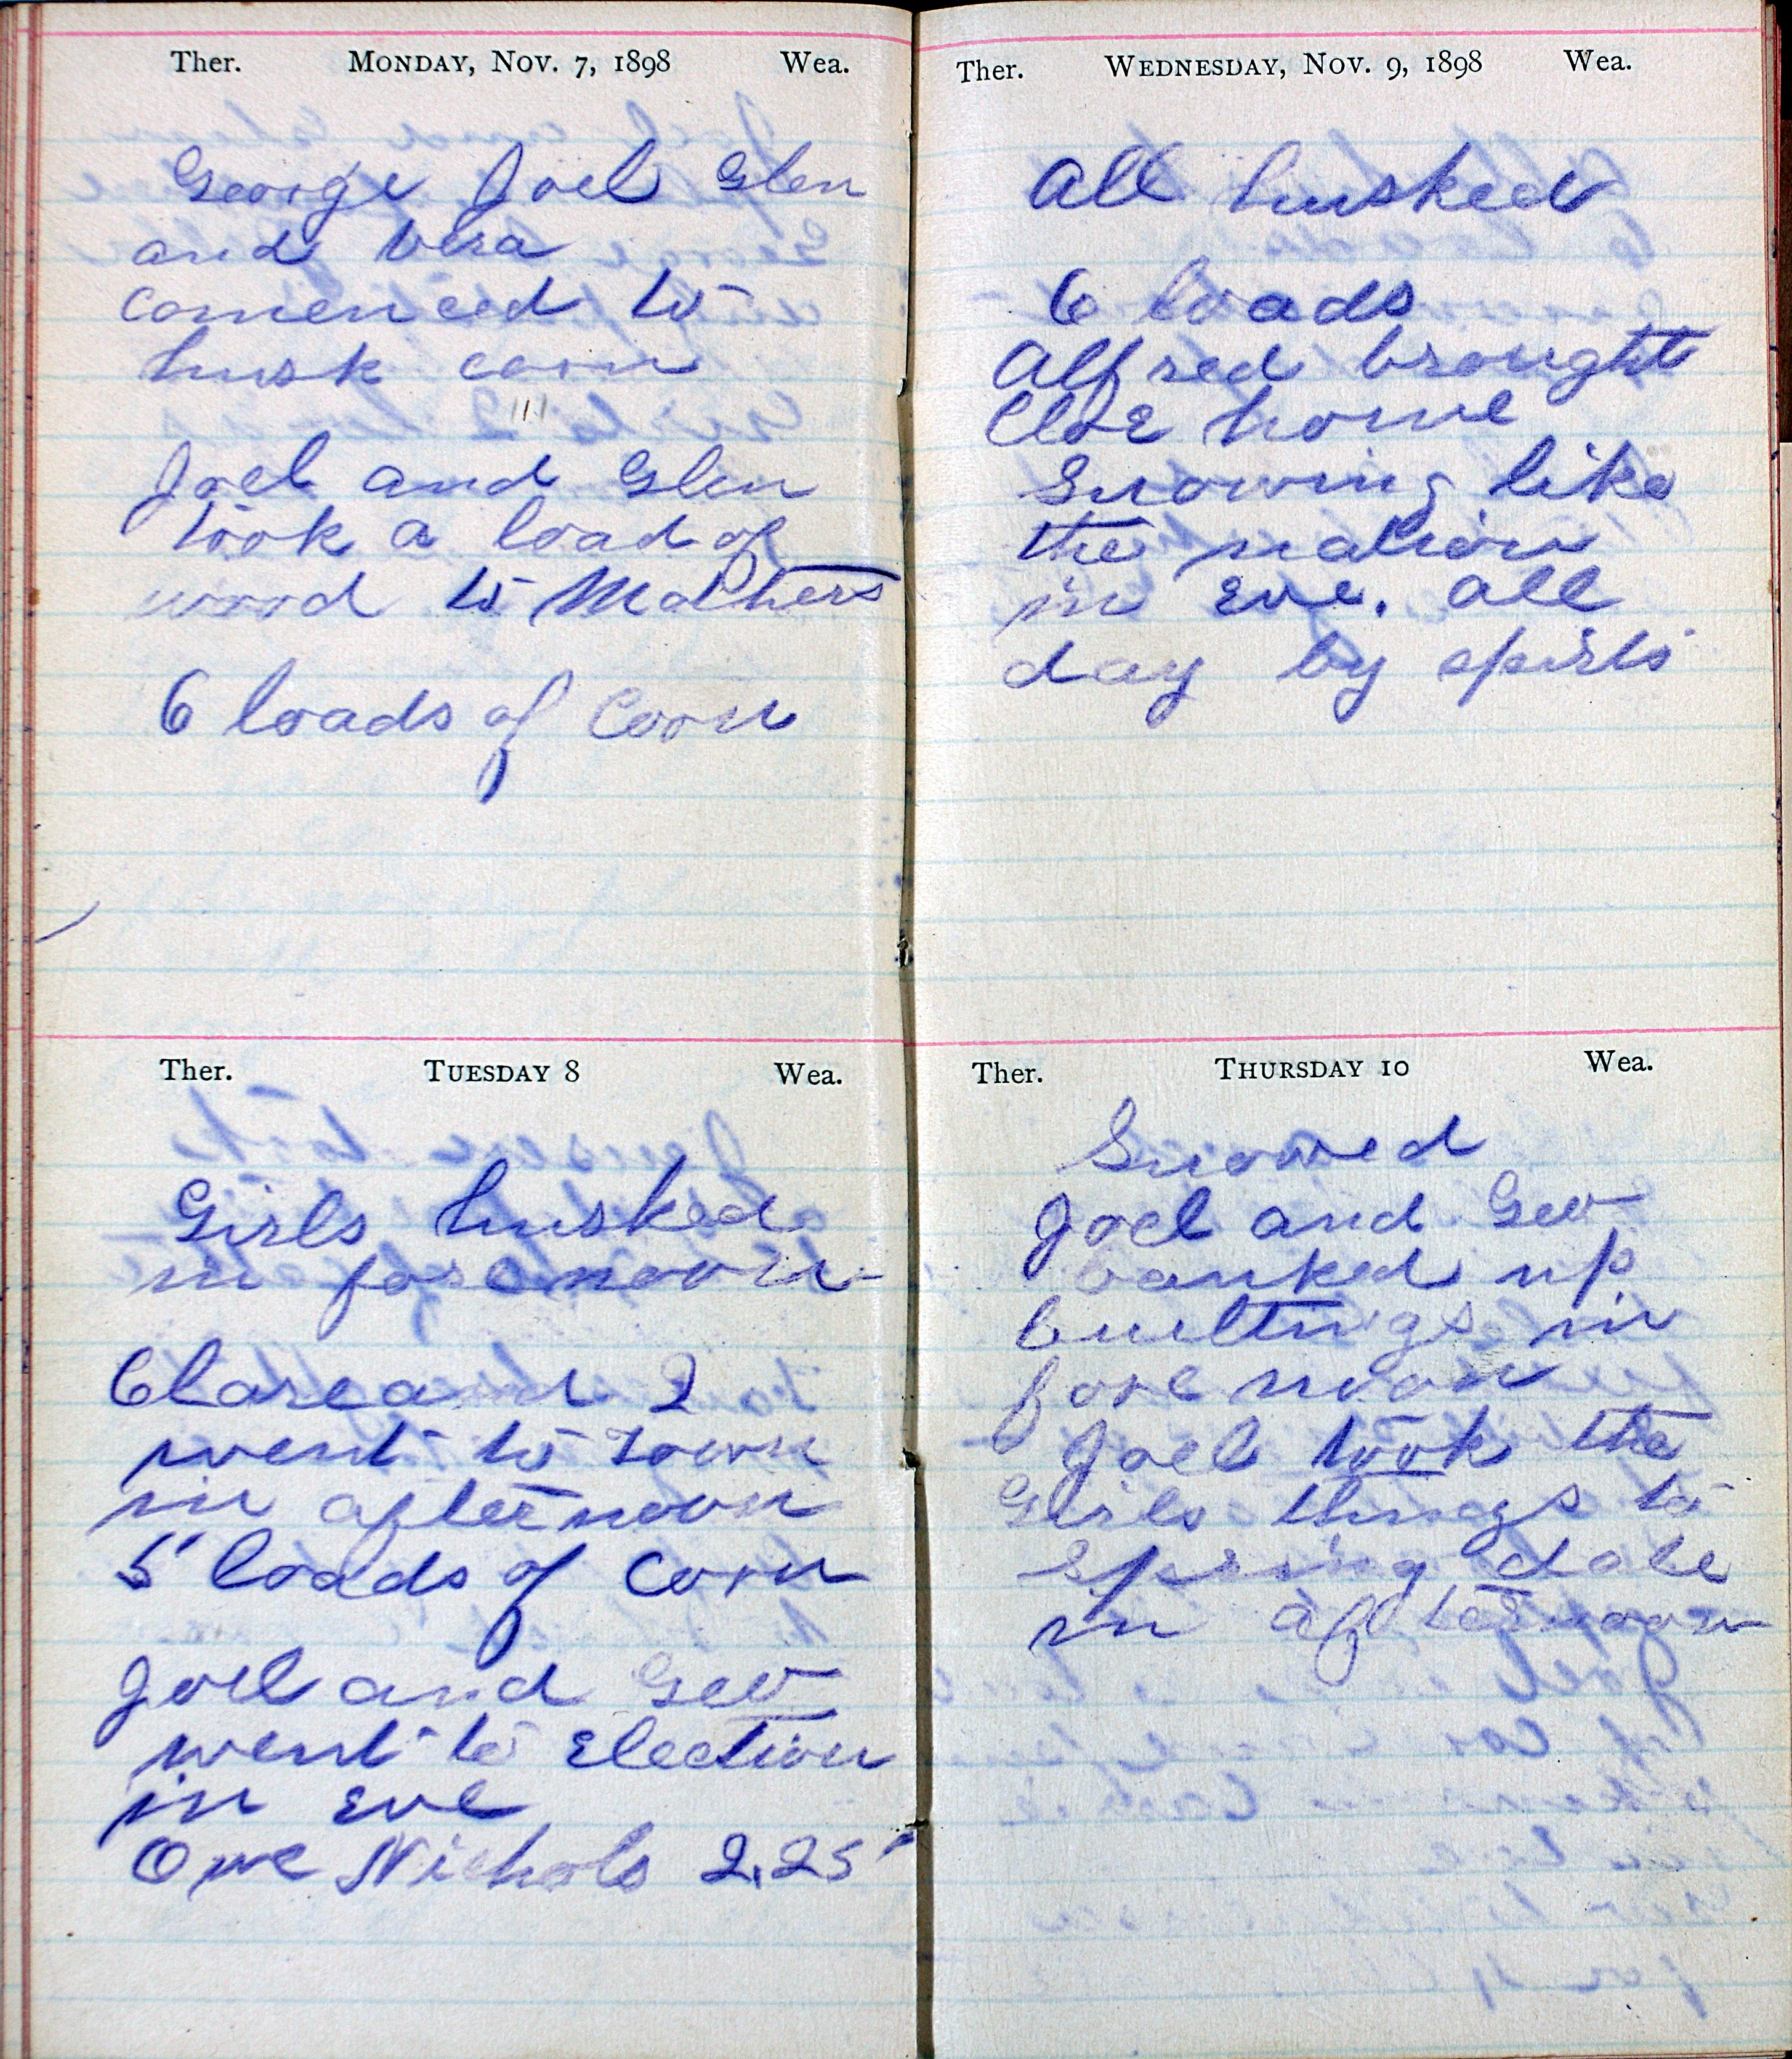 Ther. MONDAY, NOV. 7, 1898 Wea.
George Joel Glen
and Vera
comenced to
husk corn
Joel and Glen
took a load of
wood to Mothers
6 loads of Corn
Ther. TUESDAY 8 Wea.
Girls husked
in forenoon
Clare and I
went to town
in afternoon
5 loads of corn
Joel and Geo
went to Election
in Eve
Owe Nichols 2.25
Ther. WEDNESDAY, NOV. 9, 1898 Wea.
All husked
6 loads
Alfred brought
home
Snowing like
the nation
in Eve. all
day by spirts
Ther. THURSDAY 10 Wea.
Snowed
Joel and Geo
banked up
builtings in
fore noon
Joel took the
Girls things to
Spring dale
in afternoon